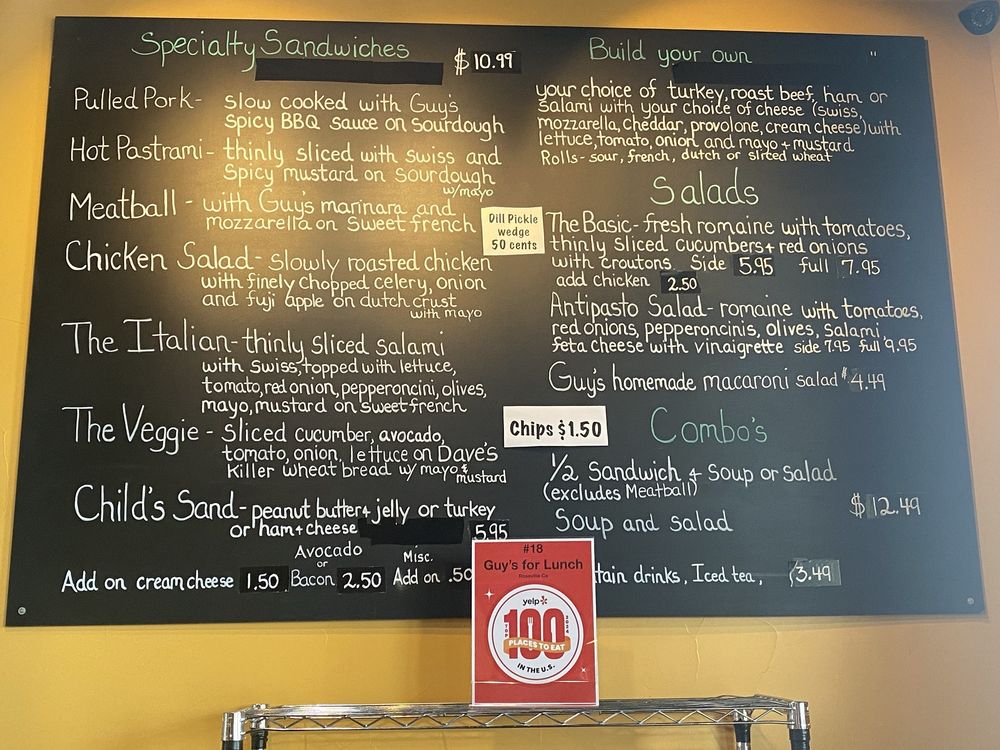 Specialty Sandwiches $10.99
Pulled Pork- slow cooked with Guy's
spicy BBQ sauce on sourdough
Hot Pastrami- thinly sliced with swiss and
spicy mustard on sourdough
w/mayo
Meatball - with Guy's marinara and
mozzarella on sweet french
Chicken Salad- slowly roasted chicken
with finely chopped celery, onion
and fuji apple on dutch crust
with mayo
The Italian- thinly sliced salami
with swiss, topped with lettuce,
tomato, red onion, pepperoncini, olives,
mayo, mustard on sweet french
The Veggie - sliced cucumber, avocado,
tomato, onion, lettuce on Dave's
killer wheat bread w/ mayo &
mustard
Child's Sand- peanut butter + jelly or turkey
or ham + cheese 5.95
Avocado
or
Misc.
Add on cream cheese 1.50 Bacon 2.50 Add on .50
Dill Pickle
wedge
50 cents
Chips $1.50
Build your own "
your choice of turkey, roast beef, ham or
salami with your choice of cheese (swiss,
mozzarella, cheddar, provolone, cream cheese) with
lettuce, tomato, onion and mayo + mustard
Rolls - sour, french, dutch or sliced wheat
Salads
The Basic- fresh romaine with tomatoes,
thinly sliced cucumbers + red onions
with croutons. Side 5.95 full 7.95
add chicken 2.50
Antipasto Salad- romaine with tomatoes,
red onions, pepperoncinis, olives, salami,
feta cheese with vinaigrette side 7.95 full 9.95
Guy's homemade macaroni salad $4.49
Combo's
1/2 Sandwich + Soup or Salad
(excludes Meatball)
$12.49
Soup and salad
tain drinks, Iced tea, 3.49
#18
Guy's for Lunch
Roseville Ca
yelp
TOP 100 2024
PLACES TO EAT
IN THE U.S.